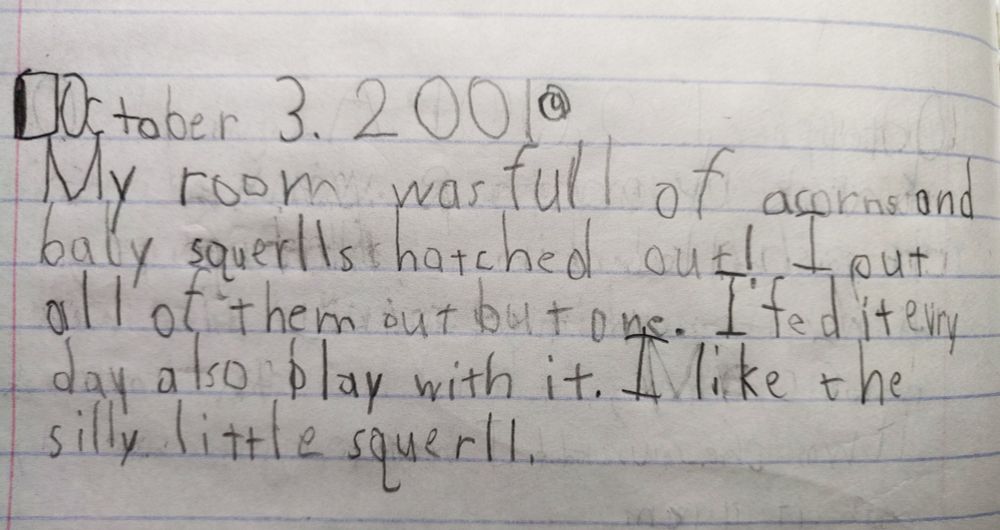 October 3. 2001
My room was full of acorns and
baby squerlls hatched out! I put
all of them out but one. I fed it evry
day also play with it. I like the
silly little squerll.